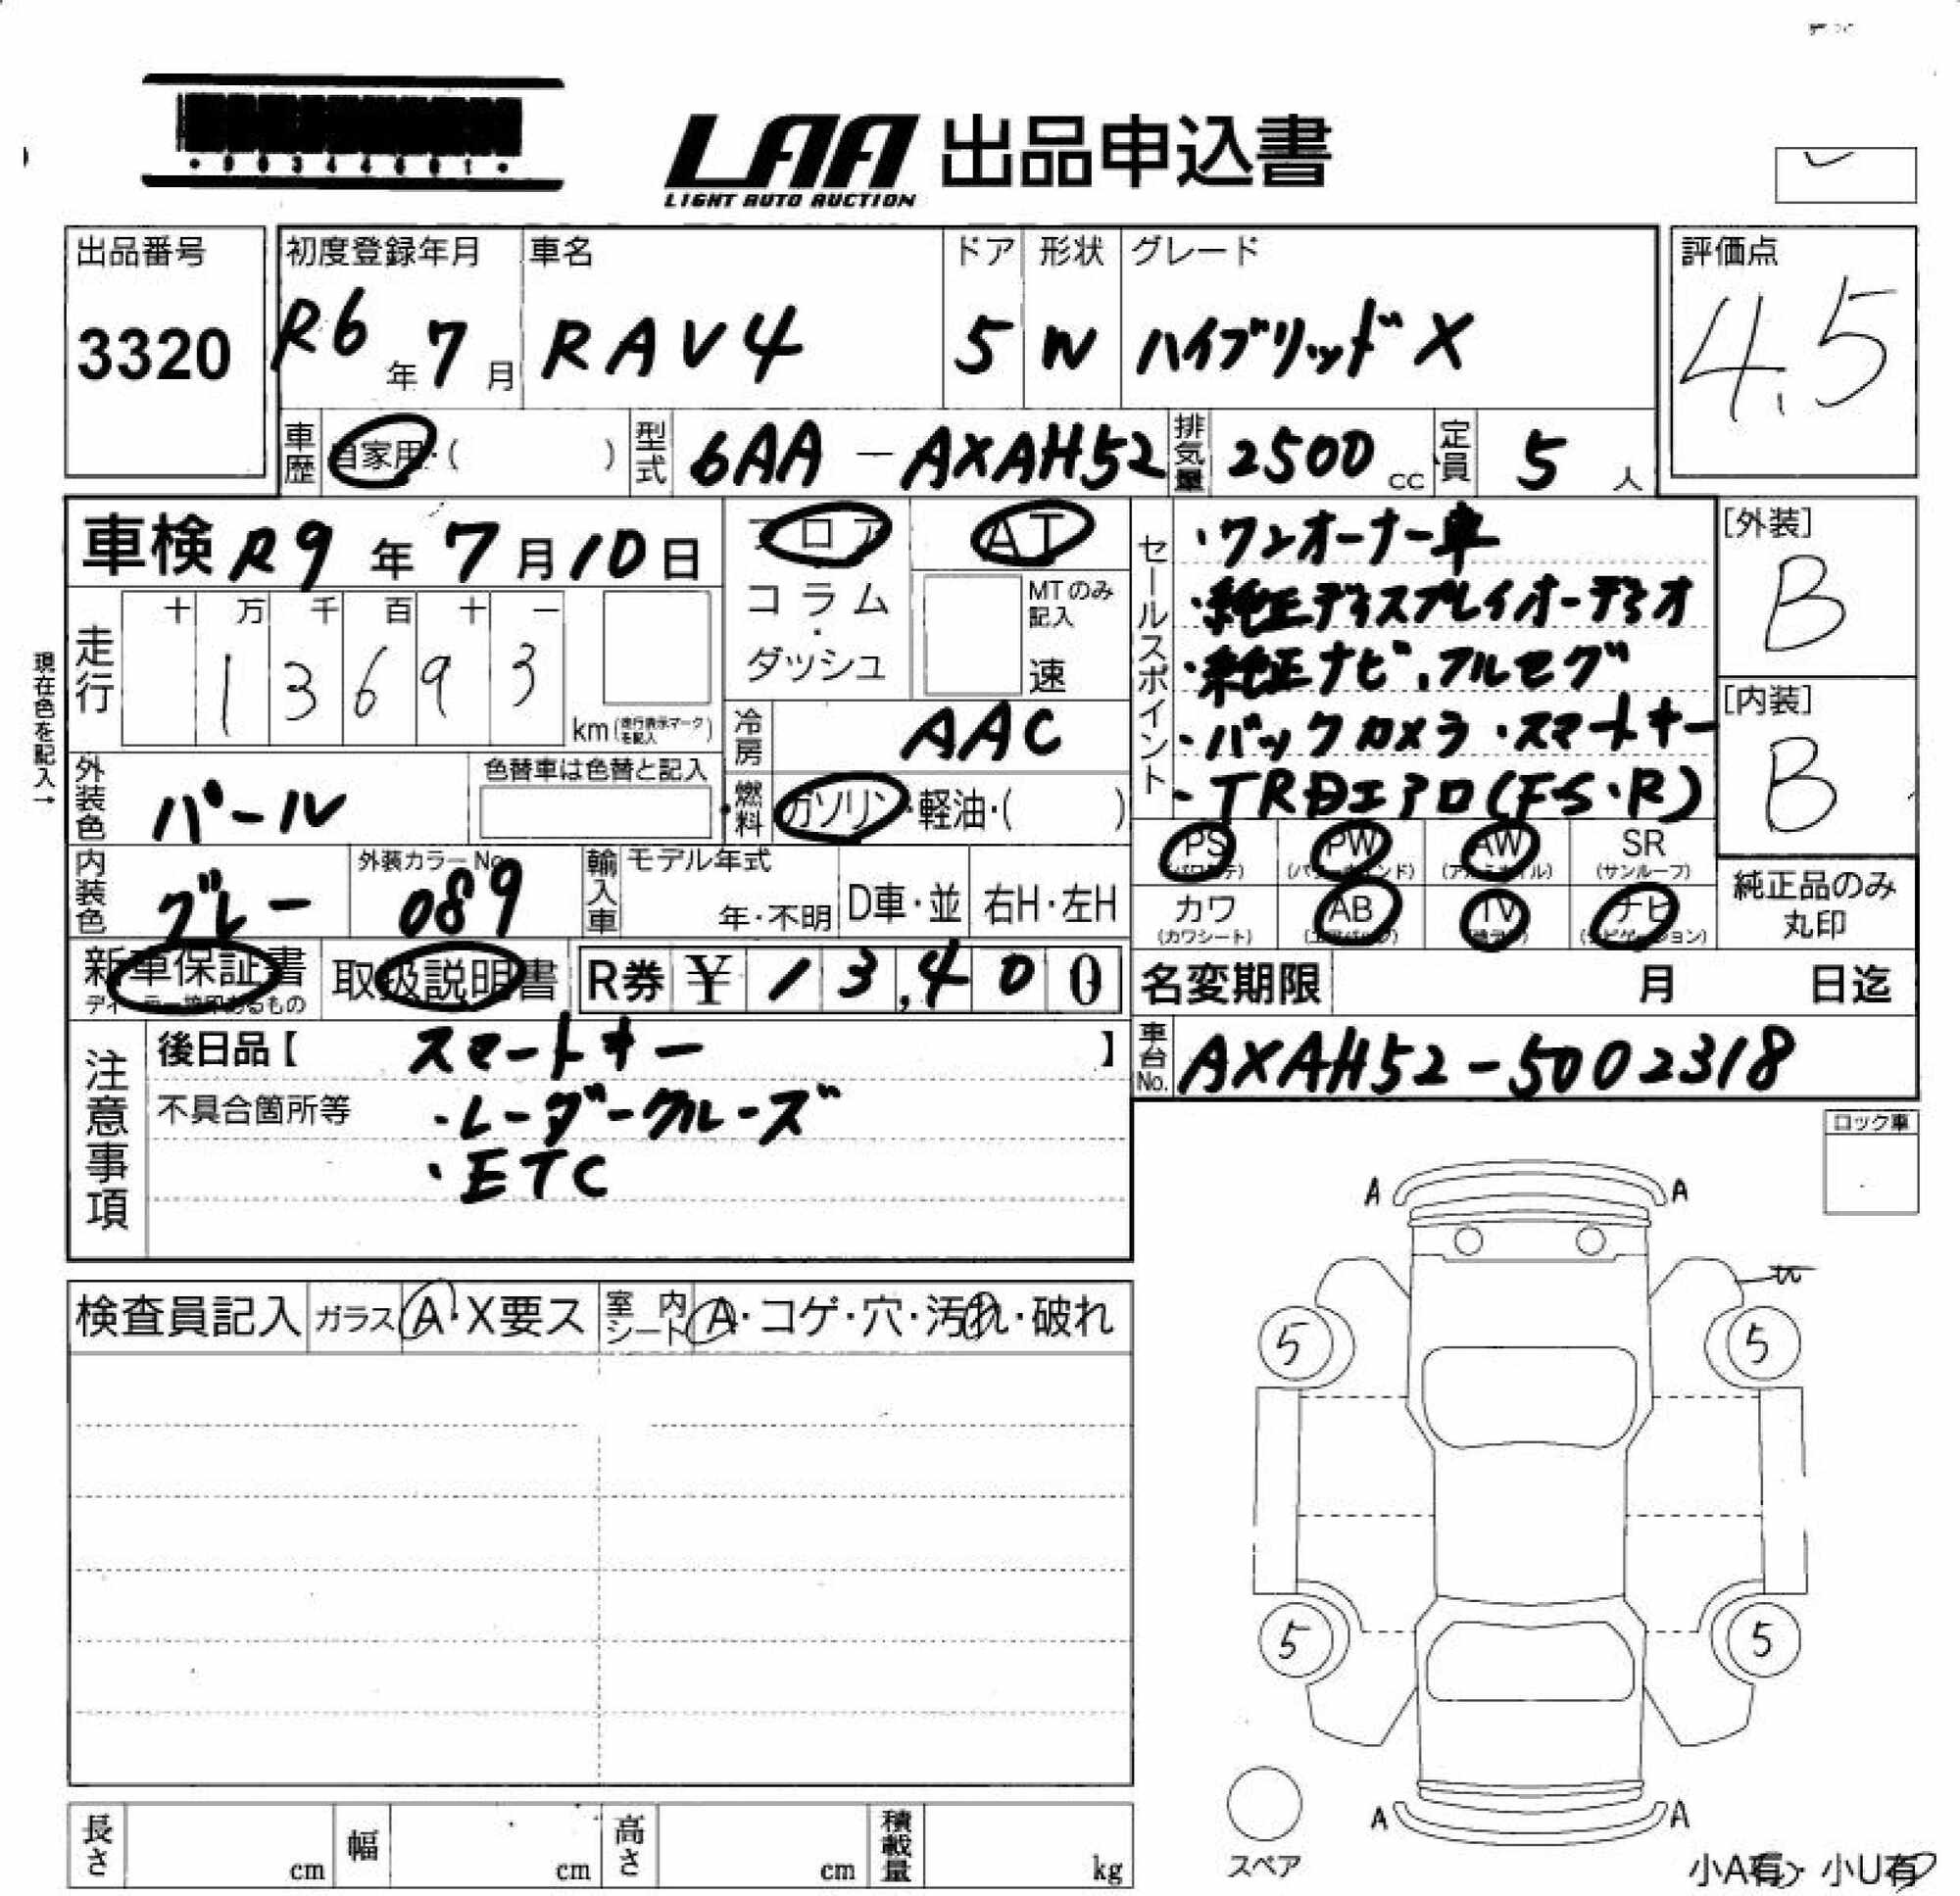 LAA 出品申込書
LIGHT AUTO AUCTION
出品番号 初度登録年月 車名 ドア 形状 グレード 評価点
3320 R6年7月 RAV4 5 W ハイブリッド X 4.5
車歴 自家用・( ) 型式 6AA-AXAH52 排気量 2500cc 定員 5人
車検 R9年7月10日 フロア AT
コラム・ダッシュ MTのみ記入 速
走行 十万千百十一
13693 km(走行表示マークを記入)
現在色を記入→
冷房 AAC
外装色 パール 色替車は色替と記入
燃料 ガソリン・軽油・( )
内装色 グレー 外装カラーNo. 089 輸入車 モデル年式 年・不明 D車・並 右H・左H
セールスポイント
・ワンオーナー車
・純正ディスプレイオーディオ
・純正ナビ・フルセグ
・バックカメラ・スマートキー
・TRDエアロ(F・S・R)
[外装] B
[内装] B
PS PW AW SR
(パワステ) (パワーウインド) (アルミホイル) (サンルーフ)
カワ AB TV ナビ
(カワシート) (エアバッグ) (ナビゲーション)
純正品のみ丸印
新車保証書 取扱説明書 R券 ¥13,400
名変期限 月 日迄
車台No. AXAH52-5002318
注意事項
後日品【 スマートキー 】
不具合箇所等 ・レーダークルーズ
・ETC
ロック車
検査員記入 ガラス A・X要ス 室内シート A・コゲ・穴・汚れ・破れ
A A
5 5
5 5
A A
スペア
小A有 小U有
長さ cm 幅 cm 高さ cm 積載量 kg